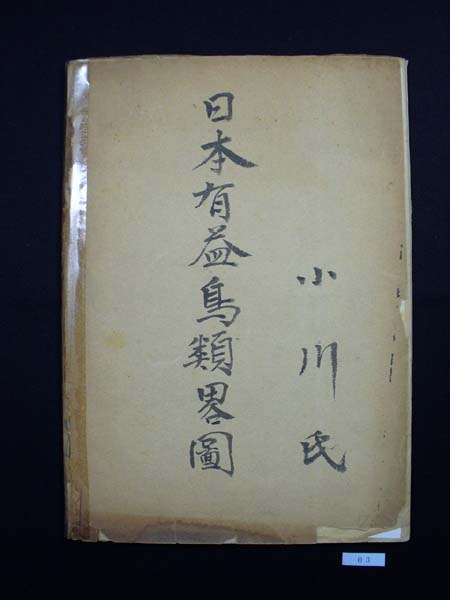 小川氏
日本有益鳥類畧圖
63